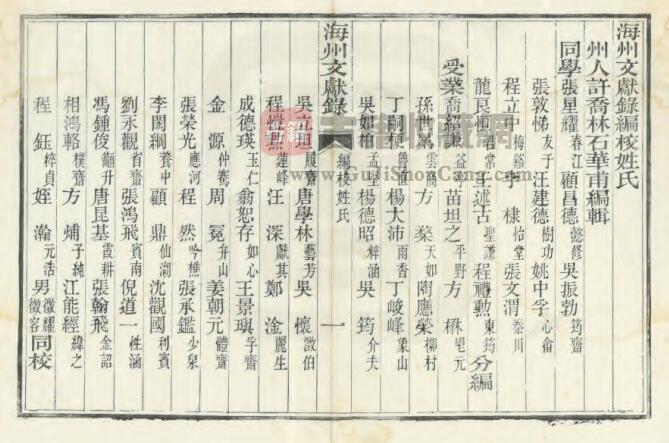 海州文獻錄編校姓氏
州人許喬林石華甫編輯
同學張星耀春江 顧昌德懿修 吳振勃筠齋
張敦悌友于 汪建德樹功 姚中孚心畬
程立中梅谿 李棣怡堂 張文渭秦川
龍艮恒 王述古聖謙 程禮勳東筠 分編
受業喬紹 益 苗坦之平野 方楙
孫世萬雲高 方棻天如 陶應榮柳村
丁嗣 魯直 楊大沛雨香 丁峻峰象山
吳如柏孟堅 楊德昭梓涵 吳筠介夫
海州文獻錄 編校姓氏 一
吳立坦履齋 唐學林藝芳 吳懷澂伯
程 蓮峰 汪深獻其 鄭淦麗生
成德瑛玉仁 翁恕存如心 王景璵孚齋
金源仲鶱 周冕升山 姜朝元體齋
張榮光應河 程然吟樵 張承鑑少泉
李閎綱養中 顧鼎仙湖 沈觀國利賓
劉永觀省齋 張鴻飛賓南 倪道一性涵
馮鍾俊 升 唐昆基霞耕 張翰飛金詔
相鴻輅樸齋 方煏子純 江能經緯之
程鈺梓貞 姪瀚元浩 男徵耀徵容同校
古籍收藏網
GujiShouCang.com